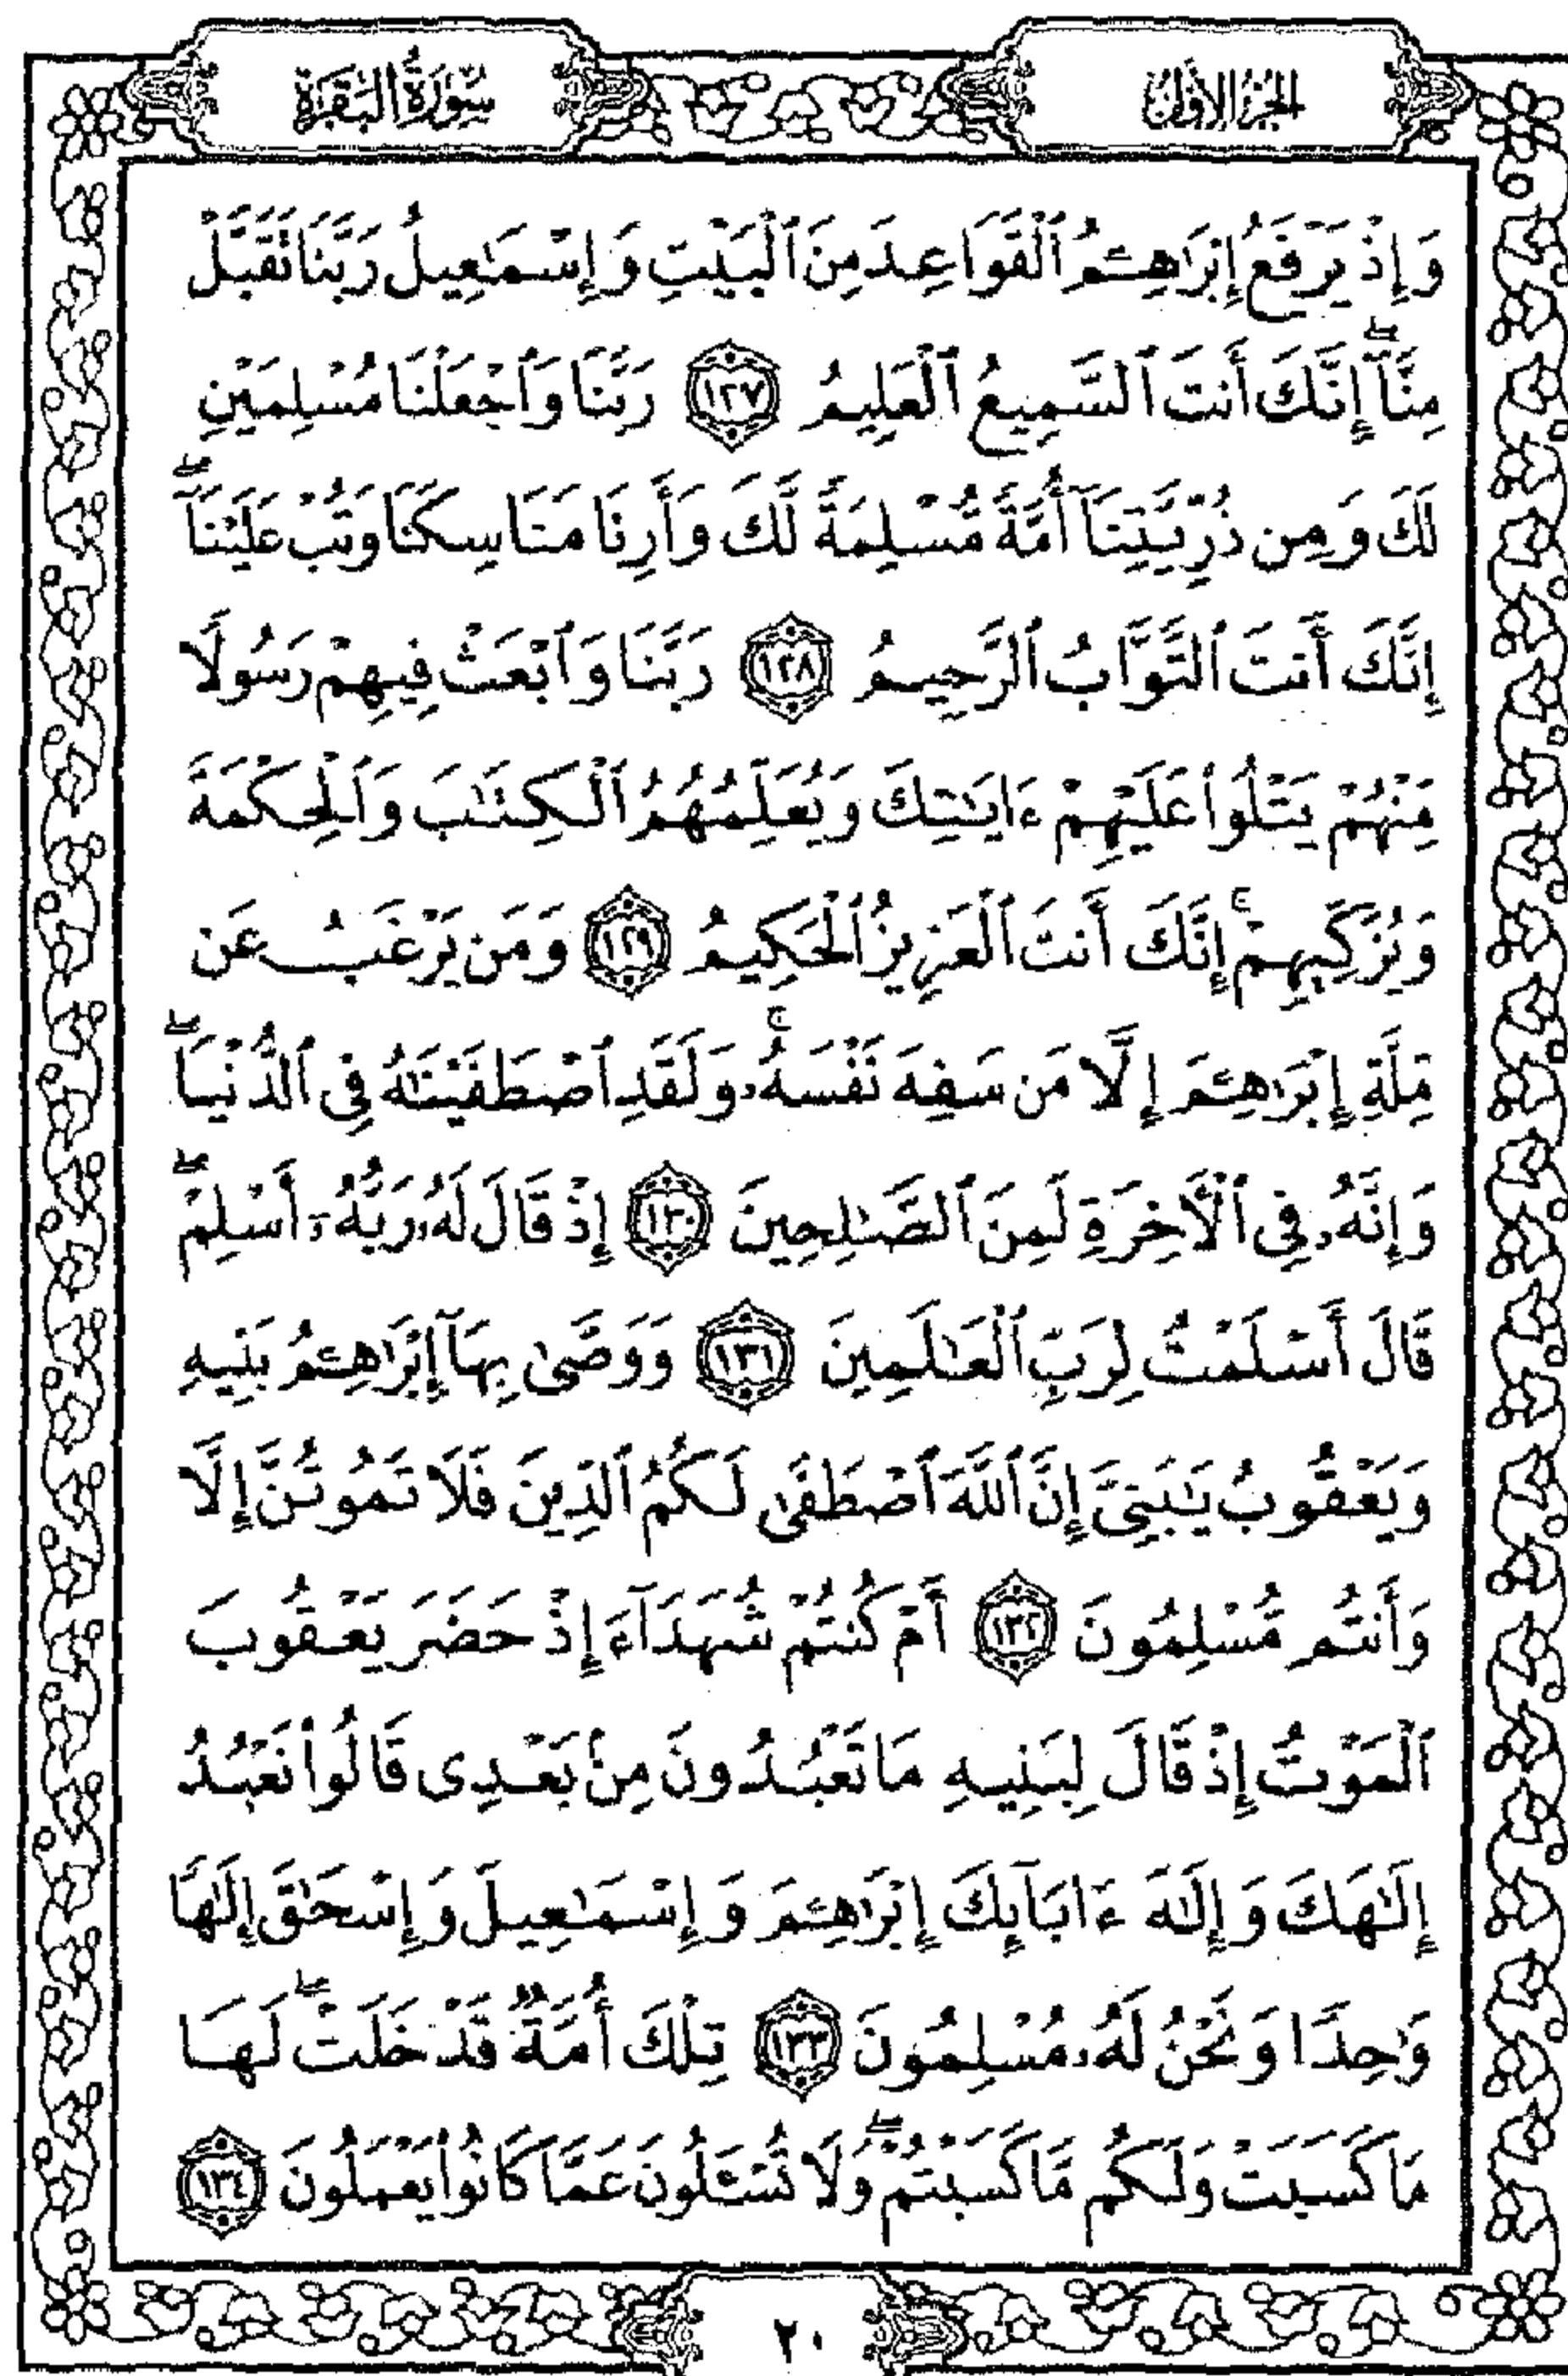 الجزء الأول
سورة البقرة
وَإِذْ يَرْفَعُ إِبْرَٰهِـۧمُ ٱلْقَوَاعِدَ مِنَ ٱلْبَيْتِ وَإِسْمَـٰعِيلُ رَبَّنَا تَقَبَّلْ
مِنَّآ ۖ إِنَّكَ أَنتَ ٱلسَّمِيعُ ٱلْعَلِيمُ ١٢٧ رَبَّنَا وَٱجْعَلْنَا مُسْلِمَيْنِ
لَكَ وَمِن ذُرِّيَّتِنَآ أُمَّةً مُّسْلِمَةً لَّكَ وَأَرِنَا مَنَاسِكَنَا وَتُبْ عَلَيْنَآ ۖ
إِنَّكَ أَنتَ ٱلتَّوَّابُ ٱلرَّحِيمُ ١٢٨ رَبَّنَا وَٱبْعَثْ فِيهِمْ رَسُولًا
مِّنْهُمْ يَتْلُوا۟ عَلَيْهِمْ ءَايَـٰتِكَ وَيُعَلِّمُهُمُ ٱلْكِتَـٰبَ وَٱلْحِكْمَةَ
وَيُزَكِّيهِمْ ۚ إِنَّكَ أَنتَ ٱلْعَزِيزُ ٱلْحَكِيمُ ١٢٩ وَمَن يَرْغَبُ عَن
مِّلَّةِ إِبْرَٰهِـۧمَ إِلَّا مَن سَفِهَ نَفْسَهُۥ ۚ وَلَقَدِ ٱصْطَفَيْنَـٰهُ فِى ٱلدُّنْيَا ۖ
وَإِنَّهُۥ فِى ٱلْـَٔاخِرَةِ لَمِنَ ٱلصَّـٰلِحِينَ ١٣٠ إِذْ قَالَ لَهُۥ رَبُّهُۥٓ أَسْلِمْ ۖ
قَالَ أَسْلَمْتُ لِرَبِّ ٱلْعَـٰلَمِينَ ١٣١ وَوَصَّىٰ بِهَآ إِبْرَٰهِـۧمُ بَنِيهِ
وَيَعْقُوبُ يَـٰبَنِىَّ إِنَّ ٱللَّهَ ٱصْطَفَىٰ لَكُمُ ٱلدِّينَ فَلَا تَمُوتُنَّ إِلَّا
وَأَنتُم مُّسْلِمُونَ ١٣٢ أَمْ كُنتُمْ شُهَدَآءَ إِذْ حَضَرَ يَعْقُوبَ
ٱلْمَوْتُ إِذْ قَالَ لِبَنِيهِ مَا تَعْبُدُونَ مِنۢ بَعْدِى قَالُوا۟ نَعْبُدُ
إِلَـٰهَكَ وَإِلَـٰهَ ءَابَآئِكَ إِبْرَٰهِـۧمَ وَإِسْمَـٰعِيلَ وَإِسْحَـٰقَ إِلَـٰهًا
وَٰحِدًا وَنَحْنُ لَهُۥ مُسْلِمُونَ ١٣٣ تِلْكَ أُمَّةٌ قَدْ خَلَتْ ۖ لَهَا
مَا كَسَبَتْ وَلَكُم مَّا كَسَبْتُمْ ۖ وَلَا تُسْـَٔلُونَ عَمَّا كَانُوا۟ يَعْمَلُونَ ١٣٤
٢٠